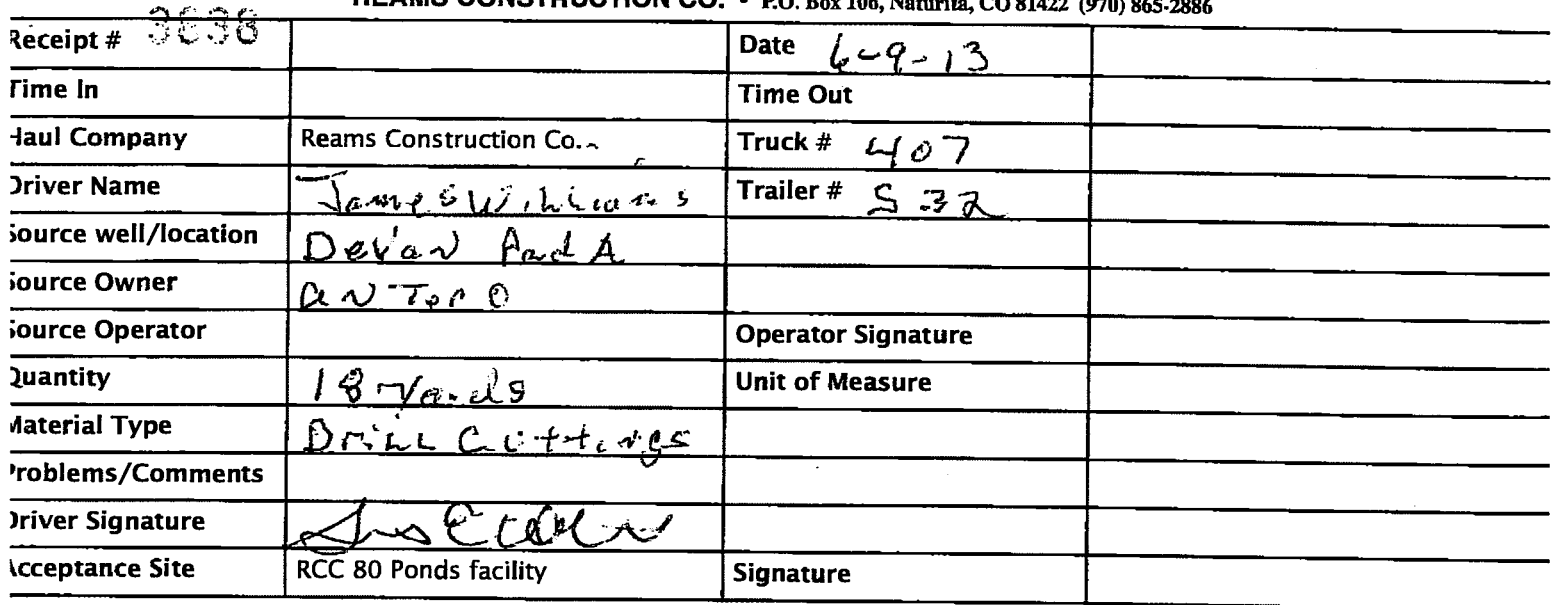 REAMS CONSTRUCTION CO. • P.O. Box 106, Naturita, CO 81422 (970) 865-2886
Receipt # 3638 Date 6-9-13
Time In Time Out
Haul Company Reams Construction Co. Truck # 407
Driver Name James Williams Trailer # S32
Source well/location Devan Pad A
Source Owner antero
Source Operator Operator Signature
Quantity 18 Yards Unit of Measure
Material Type Drill Cuttings
Problems/Comments
Driver Signature
Acceptance Site RCC 80 Ponds facility Signature